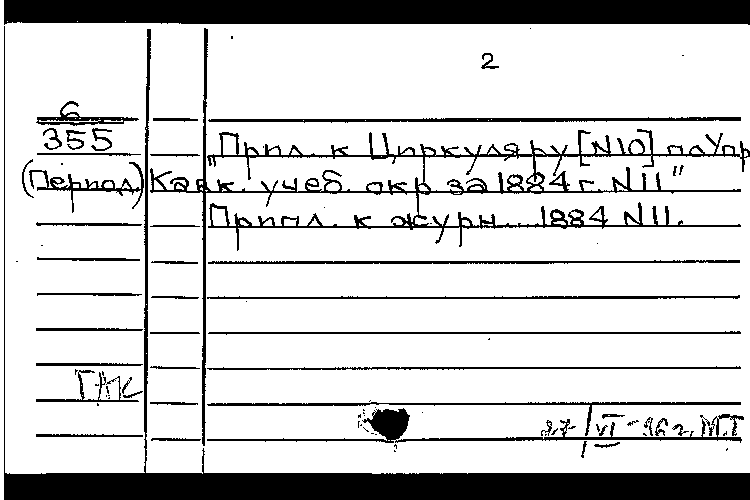 2
6
355
"Прил. к Циркуляру [N10] по Упр
(Период.) Кавк. учеб. окр за 1884 г. N11."
Прил. к журн... 1884 N11.
27/VI-